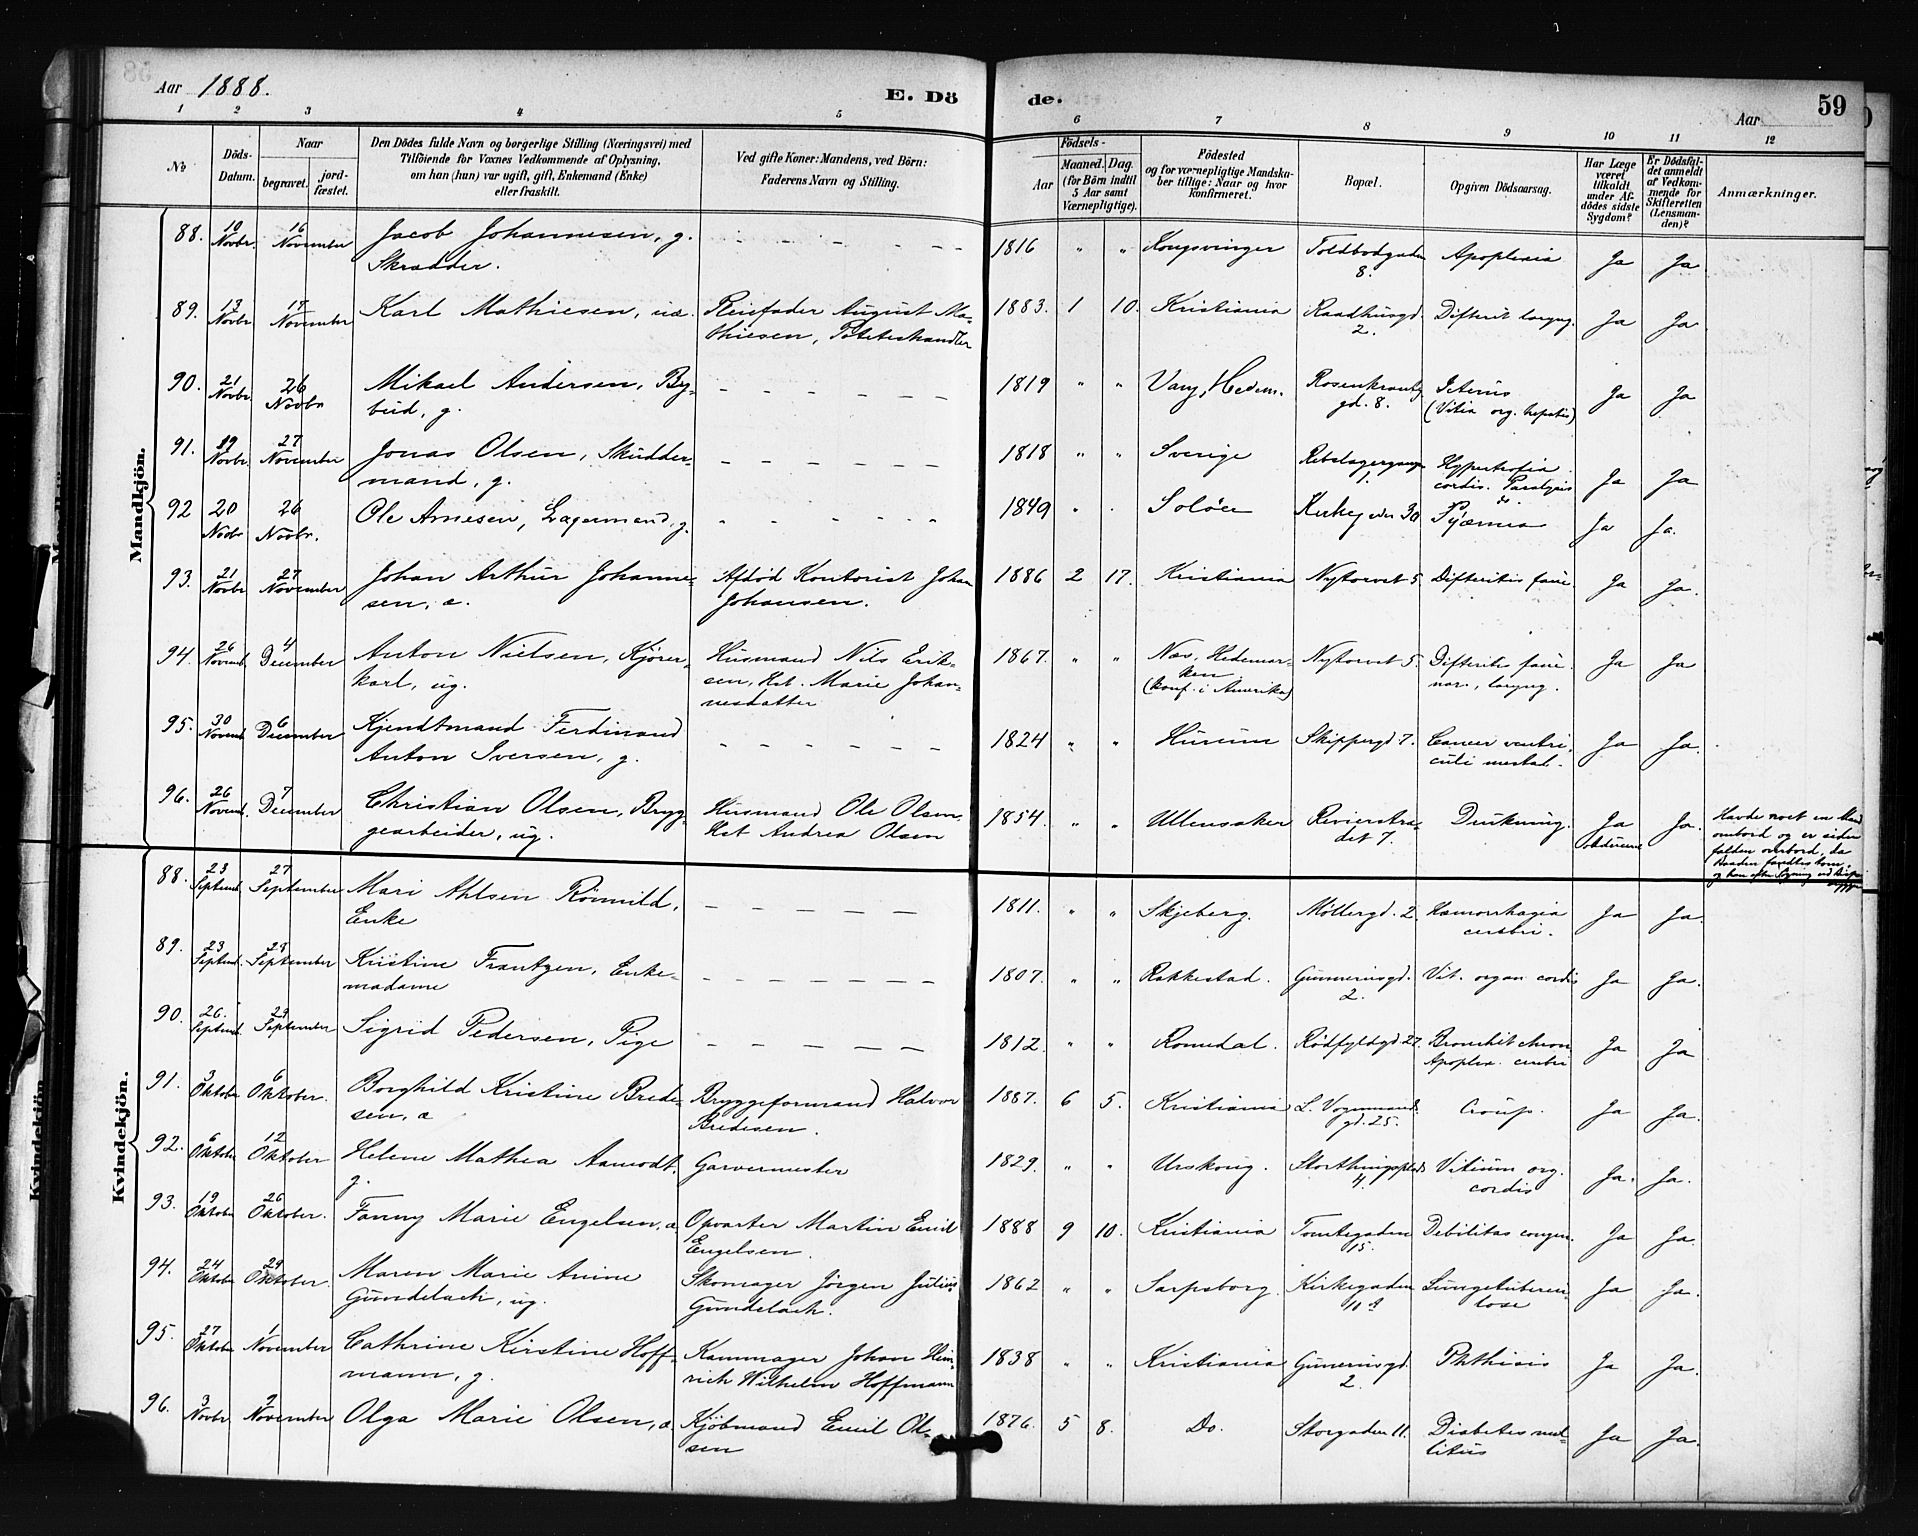 Aar 1888.
E. Dö
de.
Aar
59
1 2 3 4 5 6 7 8 9 10 11 12
No
Döds-Datum.
Naar
begravet.
jord-fæstet.
Den Dödes fulde Navn og borgerlige Stilling (Næringsvei) med
Tilföiende for Voxnes Vedkommende af Oplysning,
om han (hun) var ugift, gift, Enkemand (Enke)
eller fraskilt.
Ved gifte Koner: Mandens, ved Börn:
Faderens Navn og Stilling.
Födsels-
Aar
Maaned. Dag.
(for Börn indtil
5 Aar samt
Værnepligtige).
Födested
og for værnepligtige Mandska-
ber tillige: Naar og hvor
konfirmeret.
Bopæl.
Opgiven Dödsaarsag.
Har Læge
været
tilkaldt
under Af-
dödes sidste
Sygdom?
Er Dödsfal-
det anmeldt
af Vedkom-
mende for
Skifteretten
(Lensman-
den)?
Anmærkninger.
Mandkjön.
88. 10 Novbr. 16 November Jacob Johannesen, g. 1816 " " Kongsvinger Toldbodgaden Apoplexia Ja Ja
Skrædder. 8.
89. 13 Novbr 17 November Karl Mathiesen, uæ. Pleiefader August Ma- 1883. 1 10. Kristiania Raadhusgd. Difterit laryng. Ja Ja
thiesen, Poteteshandler 2.
90. 21 Novbr. 26 Novbr Mikael Andersen, By- 1819 " " Vang, Hedem. Rosenkrantz Icterus Ja Ja
bud, g. gd. 8. (Vitia org. hepatis)
91. 19 Novbr. 27 November Jonas Olsen, Skudder- 1818 " " Sverige Rebslagergangen Hypertrofia Ja Ja
mand, g. 1. cordis. Paralysis
do.
92 20 Novbr 26 Novbr. Ole Arnesen, Lagermand, g. 1849 " Soløer 30 Pyæmia Ja Ja.
93. 21 Novbr 27 November Johan Arthur Johanne- Afdød Kontorist Johan 1886 2 17. Kristiania Nytorvet 5. Difteritis fauc. Ja Ja.
sen, æ. Johansen.
94. 26 Novemb. 4 December Anton Nielsen, Kjører- Husmand Nils Erik- 1867. " " Næs, Hedemar- Nytorvet 5. Difterites fauc. Ja Ja
karl, ug. sen, Kst. Marie Johan- ken nar., laryng.
nesdatter (konf. i Amerika)
95. 30 Novemb 6 December Kjendtmand Ferdinand 1824 " " Hurum Skippergd 7. Cancer ventri- Ja Ja.
Anton Iversen, g. culi
96. 26 Novemb. 7 December Christian Olsen, Bryg- Husmand Ole Olsen, 1854. " " Ullensaker Revierstræ- Drukning. Ja Ja.
gearbeider, ug. Kst Andrea Olsen det 7.
Havde
ombord og er siden
falden overbord, da
Kvindekjön.
88. 23 Septemb. 27 September Mari Ahlsen Römuld, 1811. " " Skjeberg. Møllergd. 2. Hæmorrhagia Ja Ja.
Enke cerebri.
89. 23 Septemb. 29 September Kristine Frantzen, Enke- 1807. " " Rakkestad. Gunnerusgd. Vit. organ cordis Ja Ja.
madame 2.
90. 26. Septemb. 29 September Sigrid Pedersen, Pige 1812. " " Romedal. Rødfyldgd. 27. Bronchit chron Ja Ja
Apoplex. cerebri
91. 3 Oktober 6 Oktober. Borghild Kristine Brede- Bryggeformand Halvor 1887. 6 5. Kristiania L. Vognmands Croup. Ja Ja.
sen, æ Bredesen. gd. 25.
92. 6 Oktober 12 Oktober Helene Mathea Aamodt, Garvermester 1829. " " Urskoug. Storthingsplads Vitium org. Ja. Ja.
g. 4. cordis
93. 19 Oktober 26 Oktober. Fanny Marie Engelsen, æ. Opvarter Martin Emil 1888 9 10. Kristiania Tomtegaden Debilitas congen. Ja Ja.
Engelsen. 15.
94. 24 Oktober 29 Oktober Maren Marie Anine Skomager Jörgen Julius 1862 " " Sarpsborg. Kirkegaden Lungetuberku- Ja Ja.
Gundelach, ug. Gundelach. lose
95. 27 Oktober 1 November Cathrine Kirstine Hoff- Kammager Johan Hein- 1838 " " Kristiania Gunerusgd. Phthisis Ja Ja.
mann, g. rich Wilhelm Hoffmann 2.
96. 3 Novbr 9 November Olga Marie Olsen, æ. Kjöbmand Emil Ol- 1876. 5 8. Do. Storgaden 11. Diabetes mel- Ja Ja.
sen litus